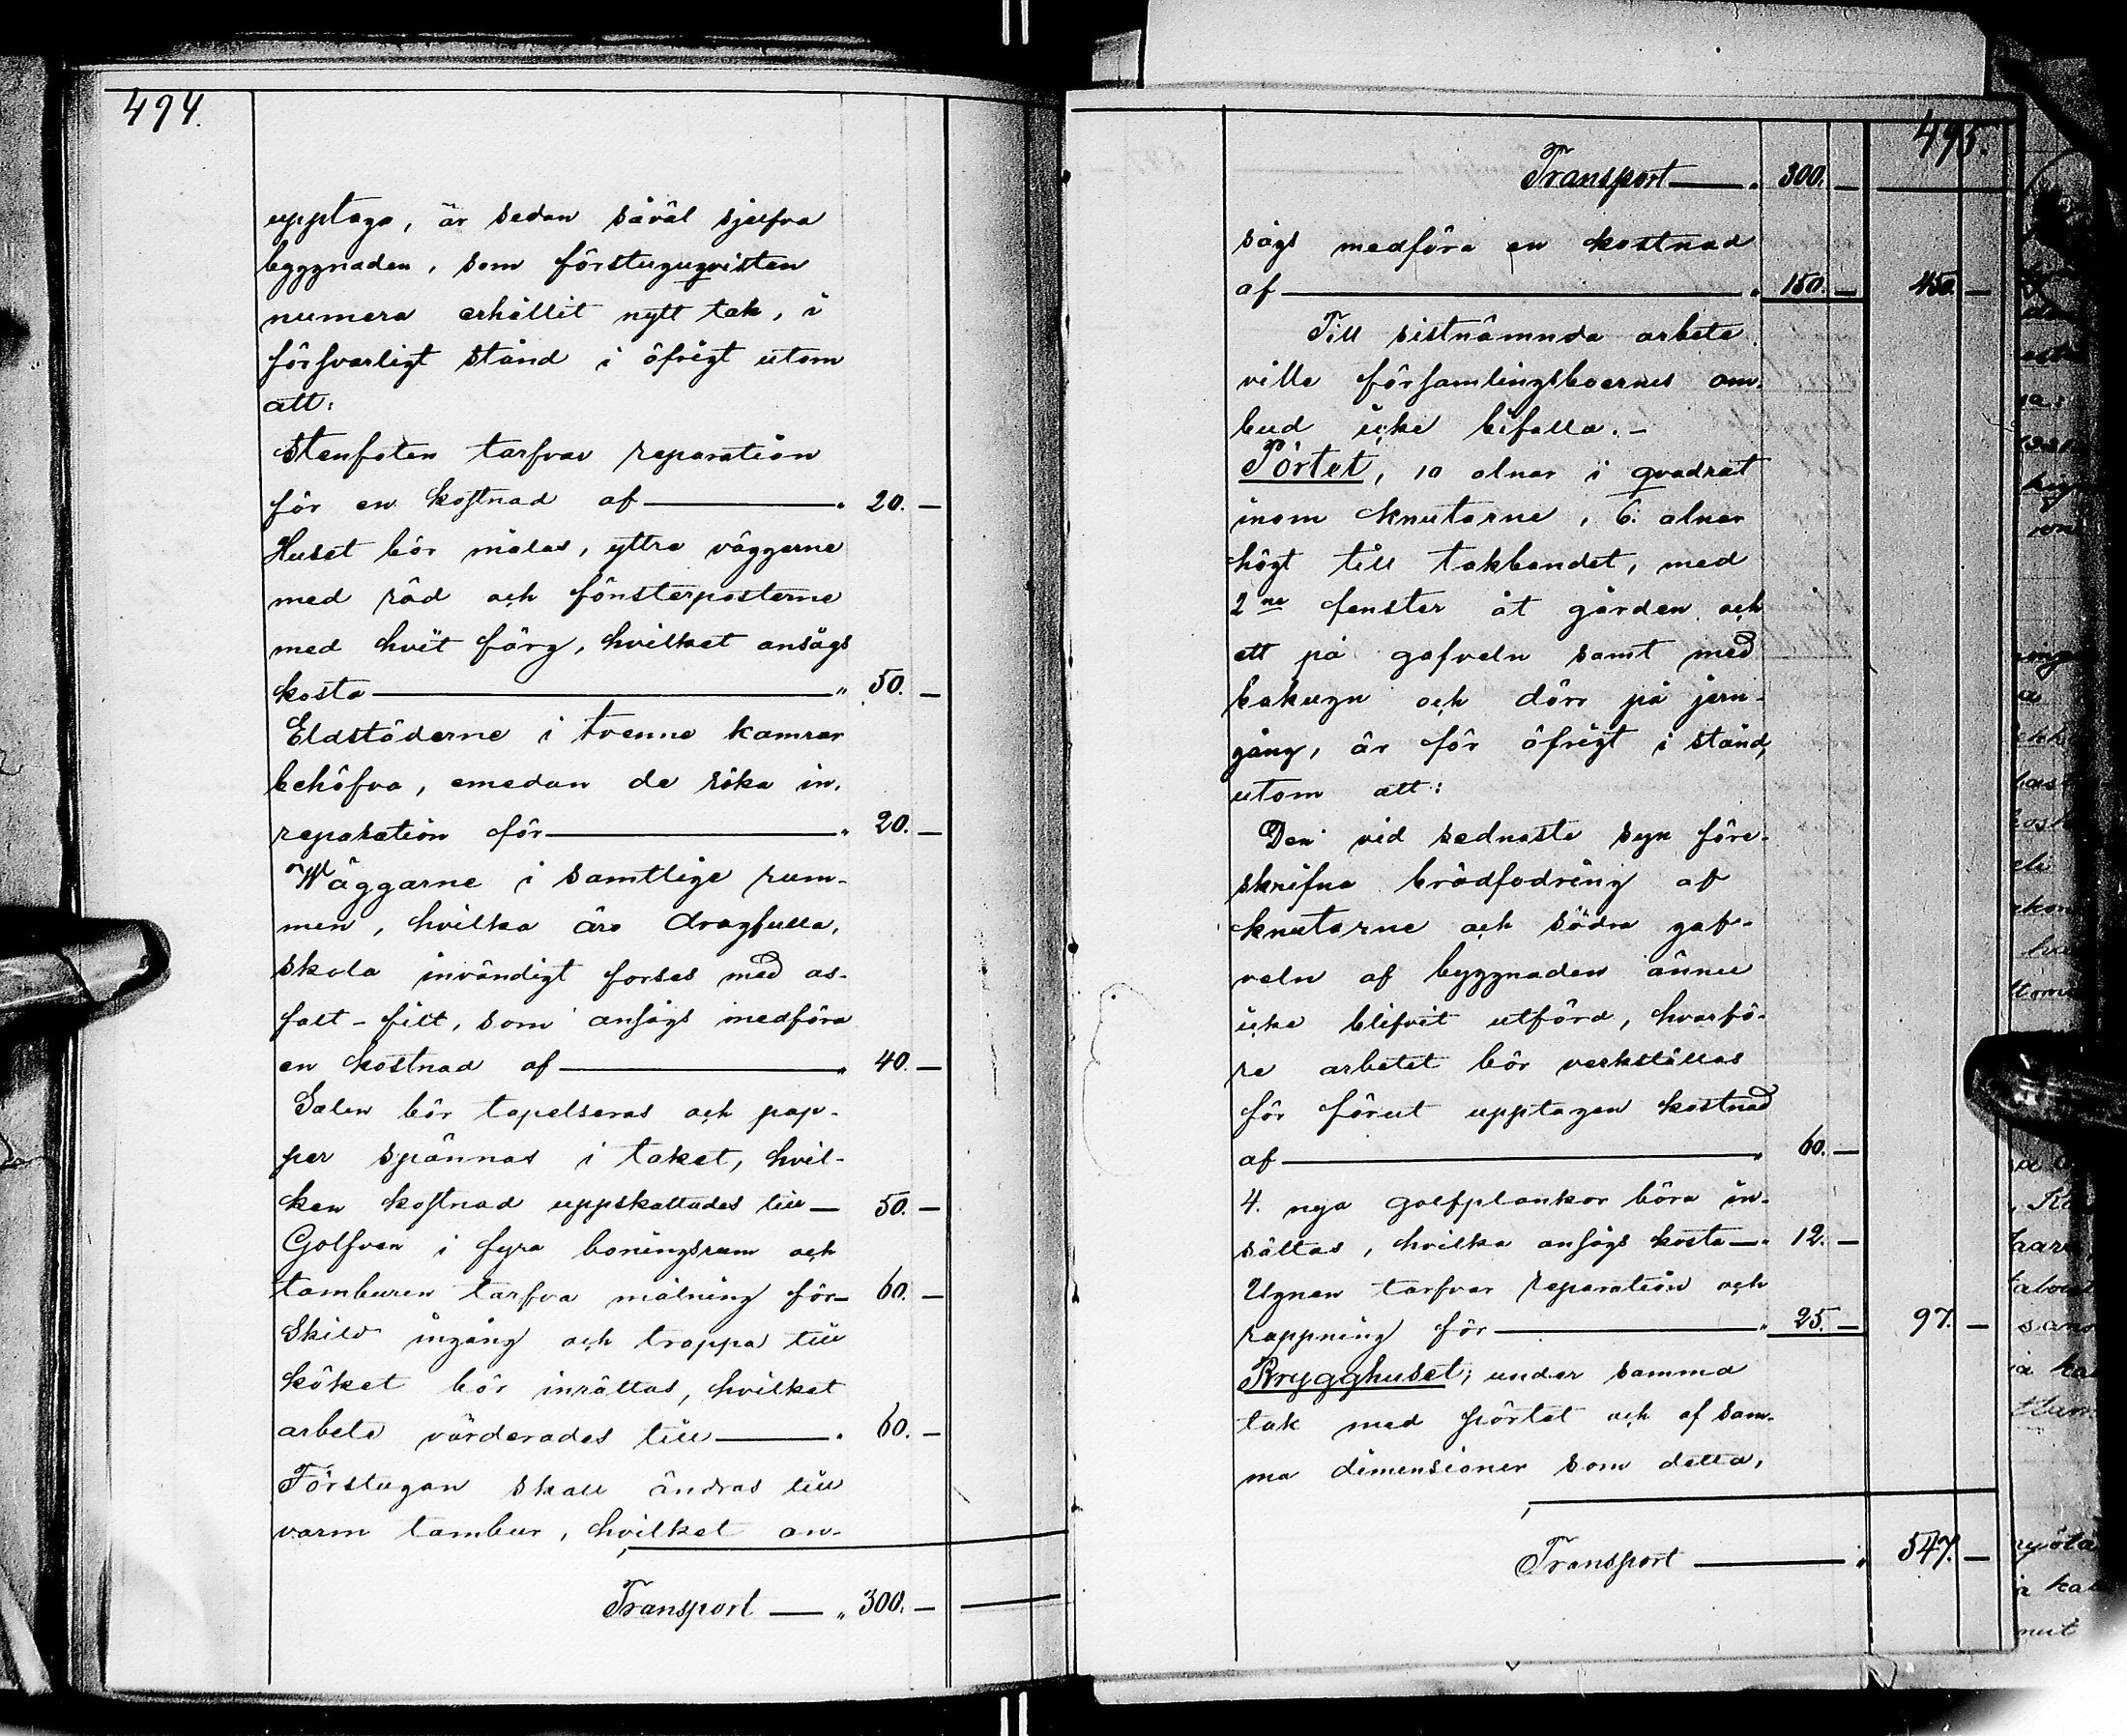 494.
upptaga, är sedan såväl sjelfva
byggnaden, som förstuguqvisten
numera erhållit nytt tak, i
försvarligt stånd i öfrigt utom
att:
Stenfoten tarfvar reparation
för en kostnad af — " 20. —
Huset bör målas, yttre väggarne
med röd och fönsterposterne
med hvit färg, hvilket ansågs
kosta — " 50. —
Eldstäderne i tvenne kamrar
behöfva, emedan de röka in,
reparation för — " 20. —
Wäggarne i samtlige rum-
men, hvilka äro dragfulla,
skola invändigt forses med as-
falt-filt, som ansågs medföra
en kostnad af — " 40. —
Salen bör tapetseras och pap-
per spännas i taket, hvil-
ken kostnad uppskattades till — 50. —
Golfven i fyra boningsrum och
tamburen tarfva målning för — 60. —
Skild ingång och trappa till
köket bör inrättas, hvilket
arbete värderades till — " 60. —
Förstugan skall ändras till
varm tambur, hvilket an-
Transport — " 300. —
495.
Transport — " 300. —
sågs medföra en kostnad
af — " 150. — 450. —
Till sistnämnda arbete
ville församlingsboernes om-
bud icke bifalla. —
Pörtet, 10 alnar i qvadrat
inom knutarne, 6. alnar
högt till takbandet, med
2ne fenster åt gården och
ett på gafveln samt med
bakugn och dörr på jern-
gång, är för öfrigt i stånd,
utom att:
Den vid sednaste syn före-
skrifna brädfodring af
knutarne och södra gaf-
veln af byggnaden ännu
icke blifvit utförd, hvarfö-
re arbetet bör verkställas
för förut upptagen kostnad
af — " 60. —
4. nya golfplankor böra in-
sättas, hvilka ansågs kosta — " 12. —
Ugnen tarfvar reparation och
rappning för — " 25. — 97. —
Brygghuset; under samma
tak med pörtet och af sam-
ma dimensioner som detta,
Transport — " 547. —